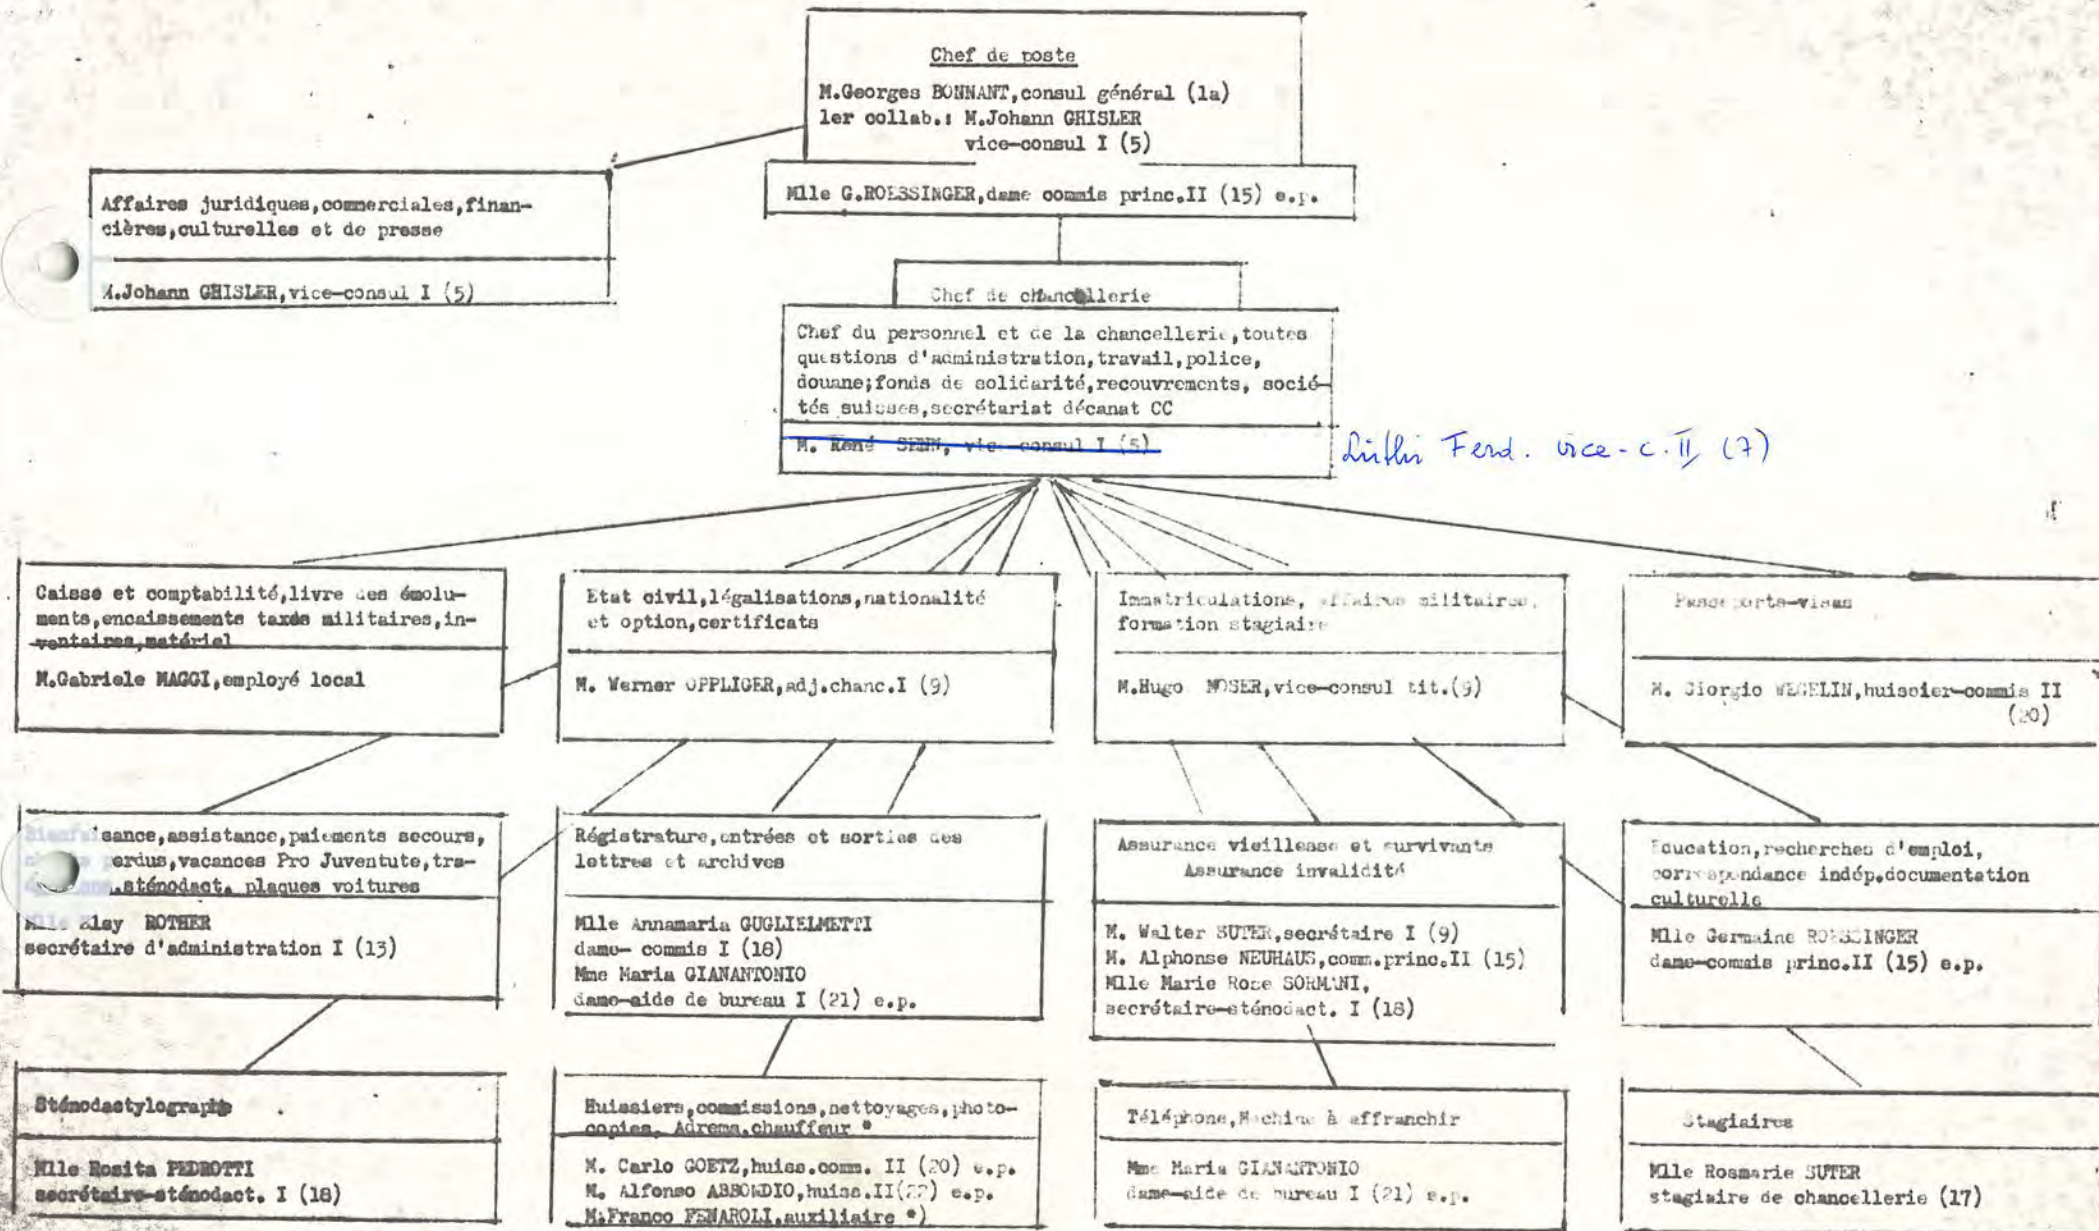 Chef de poste
M.Georges BONNANT,consul général (1a)
1er collab.: M.Johann GHISLER
vice-consul I (5)
Mlle G.ROESSINGER,dame commis princ.II (15) e.p.
Affaires juridiques,commerciales,finan-
cières,culturelles et de presse
M.Johann GHISLER,vice-consul I (5)
Chef de chancellerie
Chef du personnel et de la chancellerie,toutes
questions d'administration,travail,police,
douane;fonds de solidarité,recouvrements, socié-
tés suisses,secrétariat décanat CC
M. René SENN, vice-consul I (5)
Lüthi Ferd. vice-c. II (7)
Caisse et comptabilité,livre des émolu-
ments,encaissements taxes militaires,in-
ventaires,matériel
M.Gabriele MAGGI,employé local
Etat civil,légalisations,nationalité
et option,certificats
M. Werner OPPLIGER,adj.chanc.I (9)
Immatriculations, affaires militaires,
formation stagiaire
M.Hugo MOSER,vice-consul tit.(9)
Passeports-visas
M. Giorgio WEGELIN,huissier-commis II
(20)
sance,assistance,paiements secours,
perdus,vacances Pro Juventute,tra-
sténodact. plaques voitures
Mlle Elsy ROTHER
secrétaire d'administration I (13)
Régistrature,entrées et sorties des
lettres et archives
Mlle Annamaria GUGLIELMETTI
dame- commis I (18)
Mme Maria GIANANTONIO
dame-aide de bureau I (21) e.p.
Assurance vieillesse et survivants
Assurance invalidité
M. Walter SUTER,secrétaire I (9)
M. Alphonse NEUHAUS,comm.princ.II (15)
Mlle Marie Rose SORMANI,
secrétaire-sténodact. I (18)
Education,recherches d'emploi,
correspondance indép.documentation
culturelle
Mlle Germaine ROESSINGER
dame-commis princ.II (15) e.p.
Sténodactylographe
Mlle Rosita PEDROTTI
secrétaire-sténodact. I (18)
Huissiers,commissions,nettoyages,photo-
copies, Adrema,chauffeur *
M. Carlo GOETZ,huiss.comm. II (20) e.p.
M. Alfonso ABBONDIO,huiss.II(22) e.p.
M.Franco FENAROLI,auxiliaire *)
Téléphone,Machine à affranchir
Mme Maria GIANANTONIO
dame-aide de bureau I (21) e.p.
Stagiaires
Mlle Rosmarie SUTER
stagiaire de chancellerie (17)